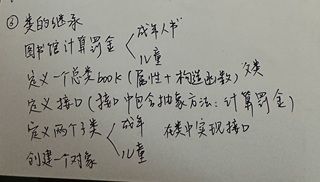 ③ 类的继承
图书馆计算罚金 成年人书
儿童
定义一个总类book（属性+构造函数）父类
定义接口（接口中包含抽象方法：计算罚金）
定义两个子类 成年 在类中实现接口
儿童
创建一个对象